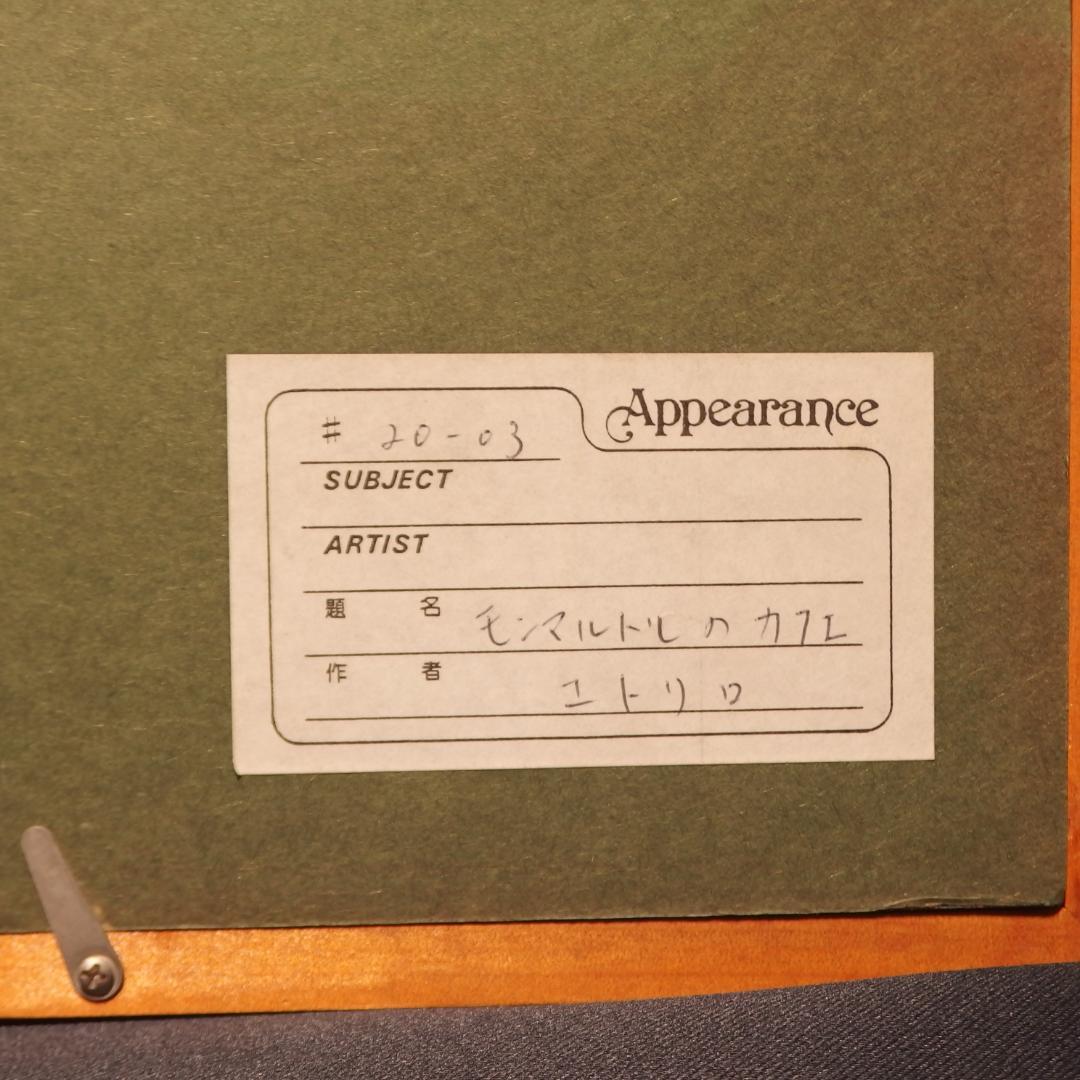 Appearance
# 20-03
SUBJECT
ARTIST
題 名 モンマルトルのカフェ
作 者 ユトリロ